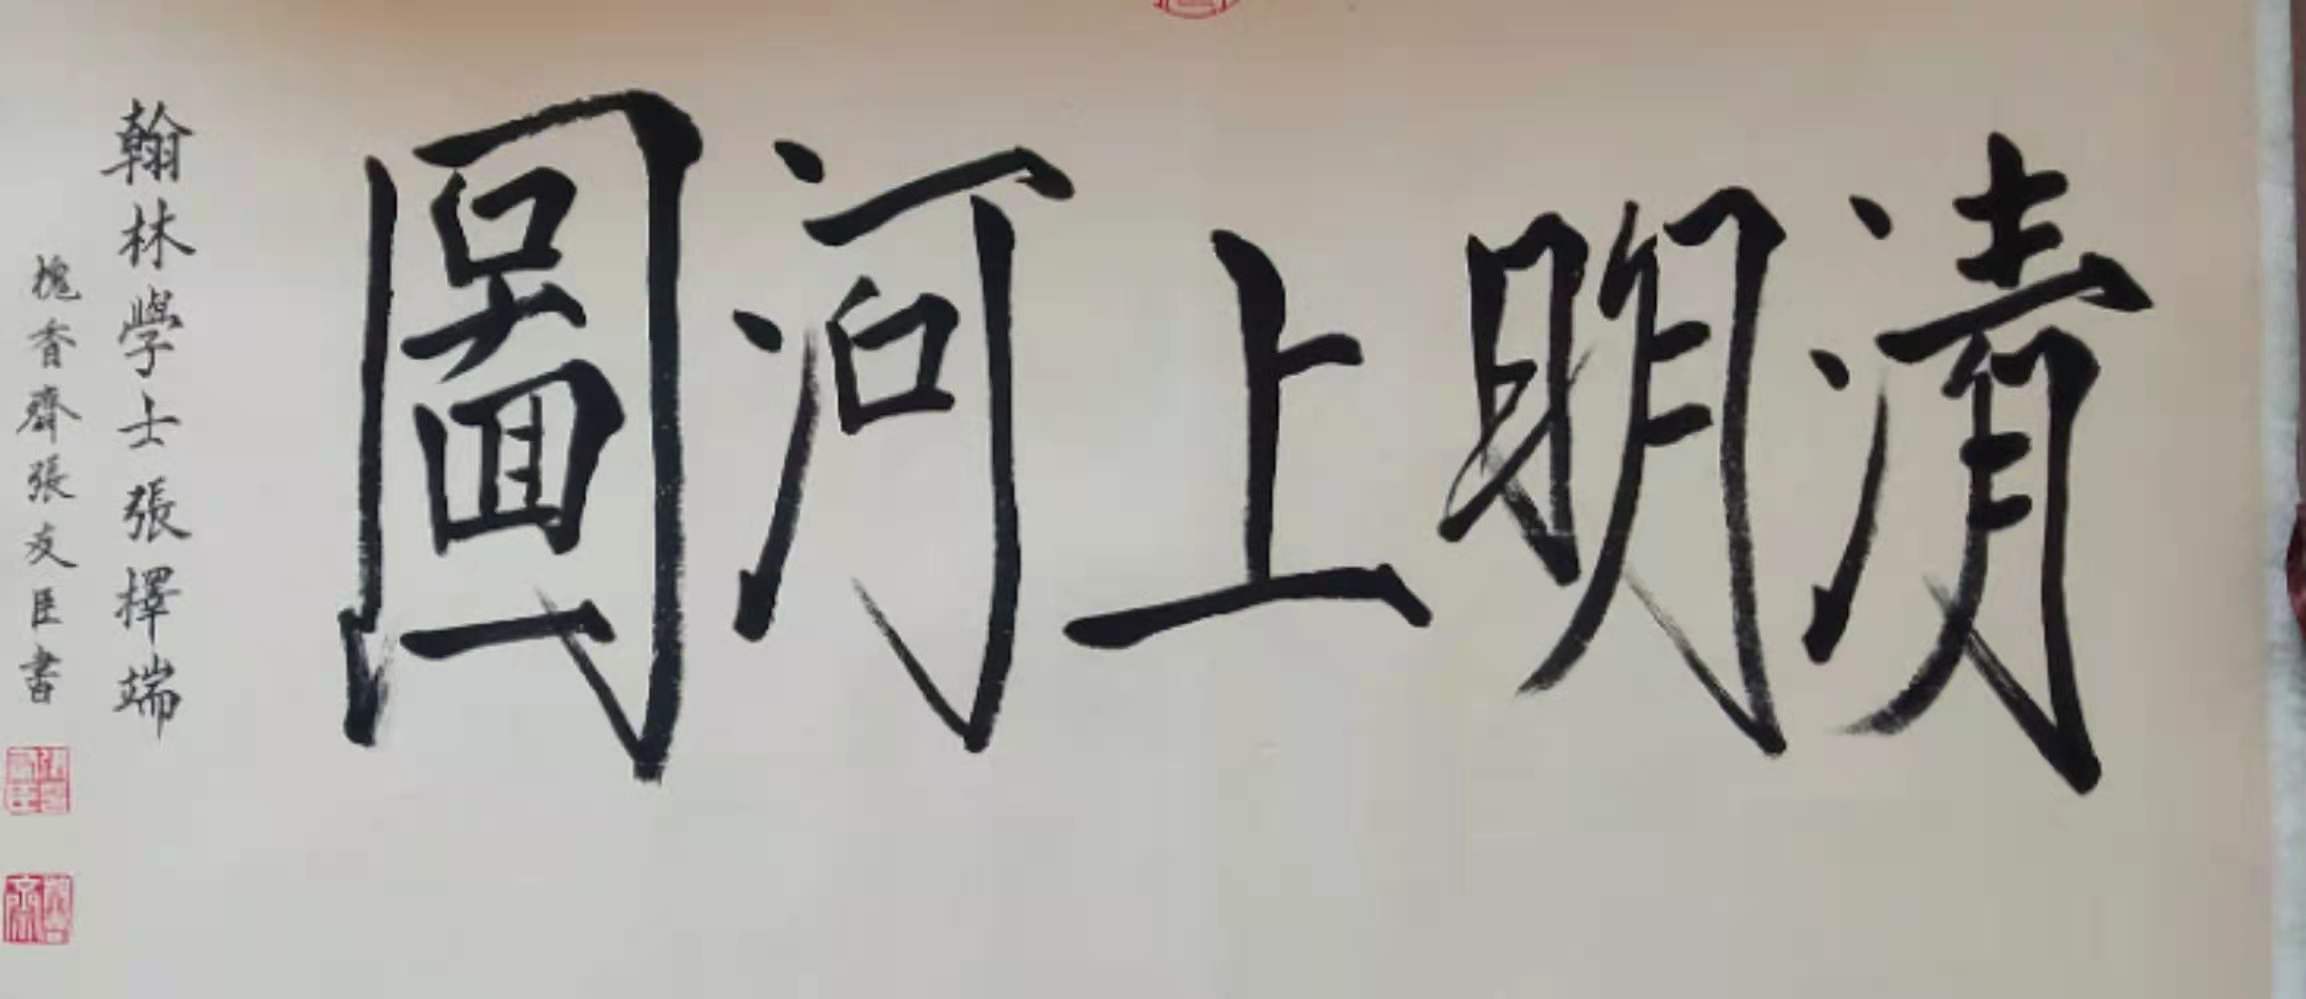 清明上河圖
翰林學士張擇端
槐香齋張友臣書